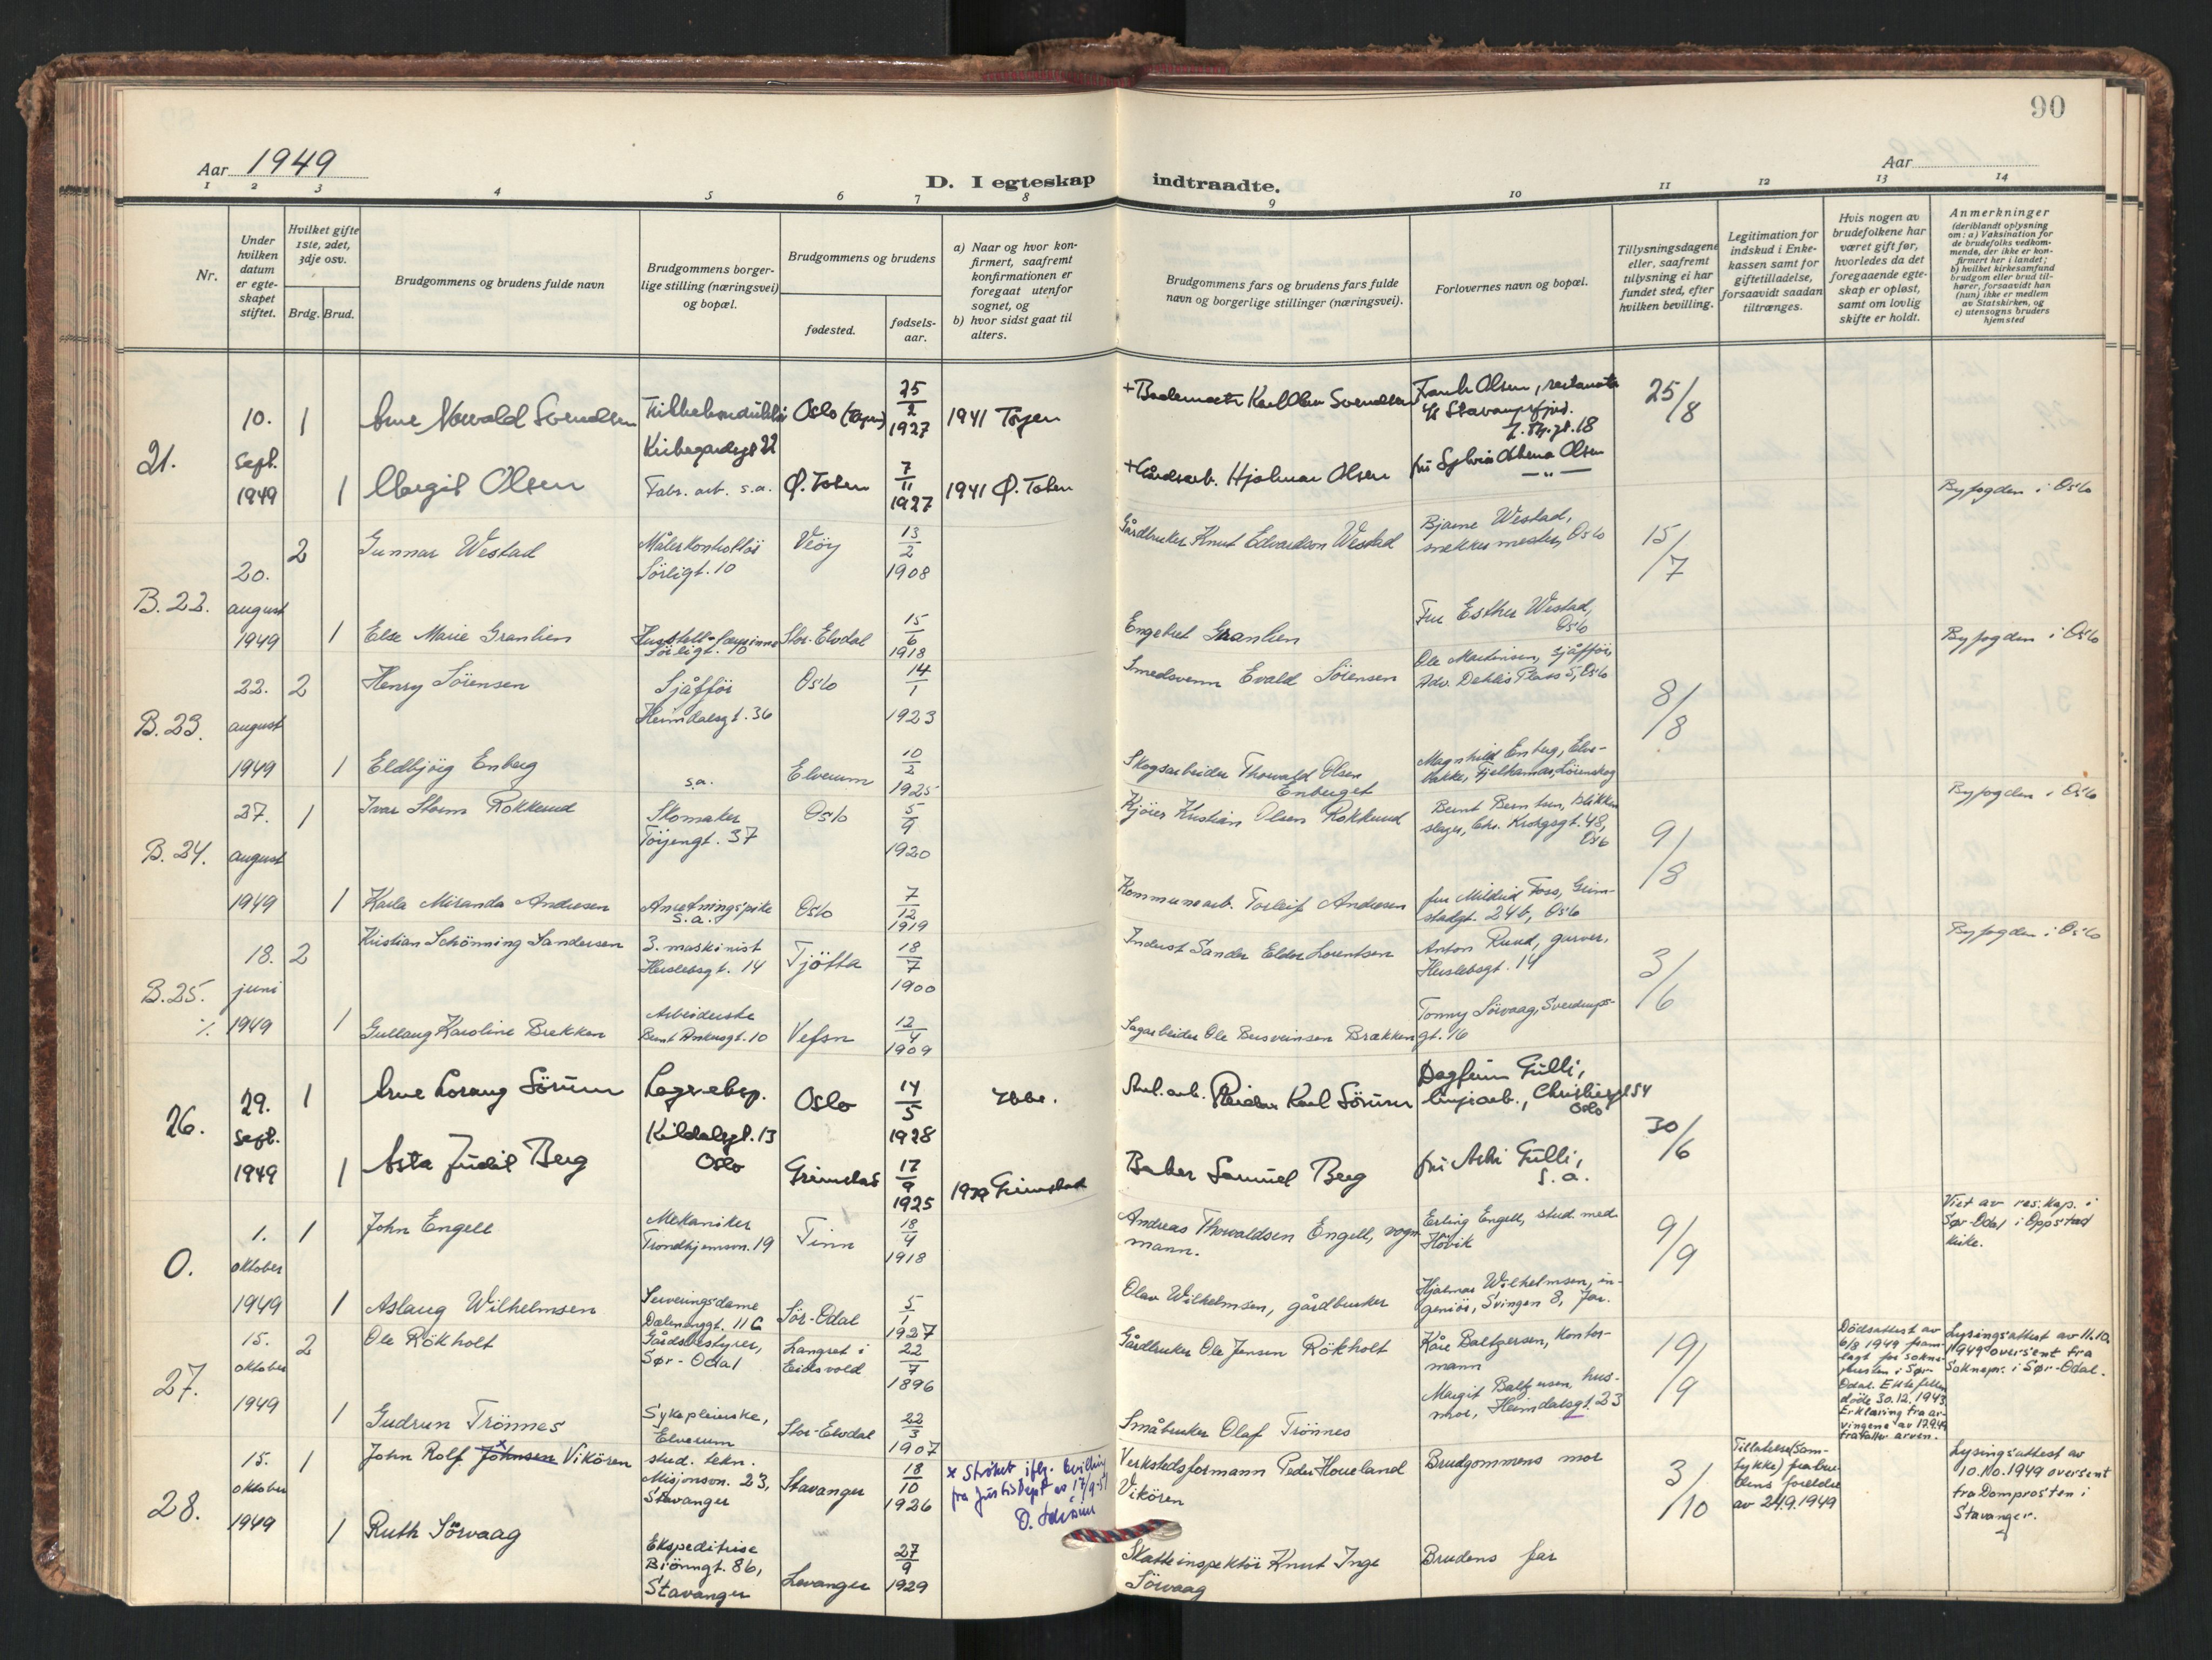 90
Aar 1949
Aar
D. I egteskap indtraadte.
1 2 3 4 5 6 7 8 9 10 11 12 13 14
Nr.
Under hvilken datum er egteskapet stiftet.
Hvilket gifte 1ste, 2det, 3dje osv.
Brdg. Brud.
Brudgommens og brudens fulde navn
Brudgommens borgerlige stilling (næringsvei) og bopæl.
Brudgommens og brudens
fødested.
fødselsaar.
a) Naar og hvor konfirmert, saafremt konfirmationen er foregaat utenfor sognet, og
b) hvor sidst gaat til alters.
Brudgommens fars og brudens fars fulde navn og borgerlige stillinger (næringsvei).
Forlovernes navn og bopæl.
Tillysningsdagene eller, saafremt tillysning ei har fundet sted, efter hvilken bevilling.
Legitimation for indskud i Enkekassen samt for giftetilladelse, forsaavidt saadan tiltrænges.
Hvis nogen av brudefolkene har været gift før, hvorledes da det foregaaende egteskap er opløst, samt om lovlig skifte er holdt.
Anmerkninger (deriblandt oplysning om: a) Vaksination for de brudefolks vedkommende, der ikke er konfirmert her i landet; b) hvilket kirkesamfund brudgom eller brud tilhører, forsaavidt han (hun) ikke er medlem av Statskirken, og c) utensogns bruders hjemsted
21.
10. sept. 1949
1
Arne Norvald Svendsen
22
Oslo (Tøyen)
25/2 1927
1941 Tøyen
Karl Olav Svendsen
Frank Olsen,
25/8
1
Margit Olsen
Fabr. arb. s.a.
Ø. Toten
7/11 1927
1941 Ø. Toten
+ Gårdsarb. Hjalmar Olsen
fru Sylvia Olsen
— " —
Byfogden i Oslo
B. 22.
20. august 1949
2
Gunnar Westad
Målerkontrollør
Sörligt. 10
Veöy
13/2 1908
Gårdbruker Knut Edvardson Westad
Bjarne Westad,
snekkermester, Oslo
15/7
1
Else Marie Granlien
Sörligt. 10
Stor-Elvdal
15/6 1918
Engebret Granlien
Fru Esther Westad,
Oslo
Byfogden i Oslo
B. 23.
22. august 1949
2
Henry Sörensen
Sjåfför
Heimdalsgt. 36
Oslo
14/1 1923
Smedsvenn Evald Sörensen
Ole Martinsen, sjåfför,
Adv. Dehlis Plass 5, Oslo
8/8
1
Eldbjörg Enberg
s.a.
Elverum
10/2 1925
Skogsarbeider Thorvald Olsen
Enberget
Magnhild Enberg, Elve-
bakke, Fjelhamar, Lörenskog
Byfogden i Oslo
B. 24.
27. august 1949
1
Ivar Storm Rokkerud
Skomaker
Töyengt. 37
Oslo
5/9 1920
Kjörer Kristian Olsen Rokkerud
Bernt Berntsen, blikken-
slager, Chr. Krohgsgt. 48,
Oslo
9/8
1
Karla Miranda Andresen
Anretningspike
s.a.
Oslo
7/12 1919
Kommunearb. Torleif Andresen
fru Mildrid Foss, Grim-
stadgt. 24b, Oslo
Byfogden i Oslo
B. 25.
18. juni 1949
2
Kristian Schönning Sandersen
3. maskinist
Herslebsgt. 14
Tjötta
18/7 1900
Sander Eldor Lorentsen
Anton Ruud, garver,
Herslebsgt. 14
3/6
1
Gullaug Karoline Brekken
Arbeiderske
Bernt Ankersgt. 10
Vefsn
12/4 1909
Sagarbeider Ole Brekken
Tommy Sörvaag, Sverdrups-
gt. 16
26.
29. sept. 1949
1
Arne Lorang Sörum
Lagereksp.
13
Oslo
Oslo
14/5 1928
Reidar Karl Sörum
Dagfinn Gulli,
linjearb., 54
Oslo
30/6
1
Asta Judit Berg
Grimstad
17/9 1925
Grimstad
Baker Samuel Berg
fru Gulli,
s.a.
O.
1. oktober 1949
1
John Engell
Mekaniker
Trondhjemsvn. 19
Tinn
18/4 1918
Andreas Thorvaldsen Engell, vogn-
mann.
Erling Engell, stud. med.
Hövik
9/9
Viet av res. kap. i
Sør-Odal i Oppstad
kirke.
1
Aslaug Wilhelmsen
Serveringsdame
Dælenenggt. 11 C
Sör-Odal
5/1 1927
Olav Wilhelmsen, gårdbruker
Hjalmar Wilhelmsen, in-
geniör, Svingen 8, Jar.
27.
15. oktober 1949
2
Ole Rökholt
Gårdsbestyrer,
Sør-Odal
Langset i
Eidsvold
22/7 1896
Gårdbruker Ole Jensen Rökholt
Kåre Baltzersen, kontor-
mann
19/9
Dødsattest av
6/8 1949 frem-
lagt for sokne-
presten i Sør-
Odal. Ektefellen
döde 30.12.1943.
Erklæring fra ar-
vingene av 17.9.49
frafaller arven.
Lysingsattest av 11.10.
1949 oversent fra
Soknepr. i Sør-Odal.
1
Gudrun Trönnes
Sykepleierske,
Elverum
Stor-Elvdal
22/3 1907
Småbruker Olaf Trönnes
Margit Baltzersen, hus-
mor, Heimdalsgt. 23
28.
15. oktober 1949
1
John Rolf Johnsen Vikören
stud. tekn.
Misjonsvn. 23,
Stavanger
Stavanger
18/10 1926
x Ströket iflg. bevilling
fra Justisdept av 17/9-51
Verkstedsformann Peder Houeland
Vikören
Brudgommens mor
3/10
Tillatelse (sam-
tykke) fra bru-
dens foreldre
av 24.9.1949
Lysingsattest av
10.10.1949 oversent
fra Domprosten i
Stavanger.
1
Ruth Sörvaag
Ekspeditrise
Biörnngt. 86,
Stavanger
Levanger
27/9 1929
Skatteinspektör Knut Inge
Sörvaag
Brudens far